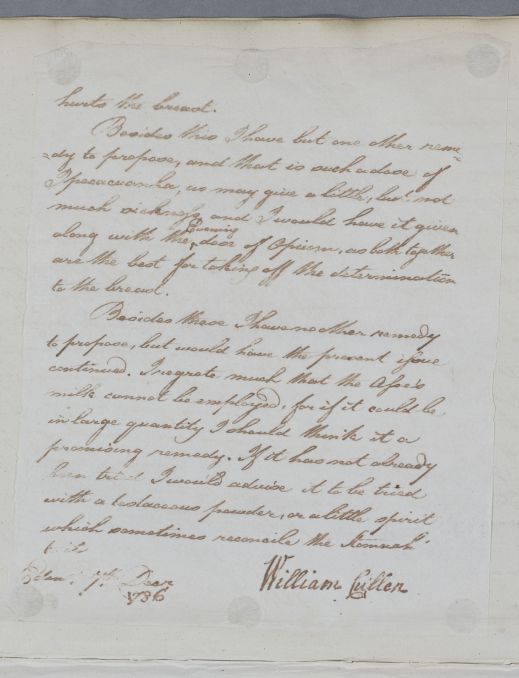 hurts the breast.
Besides this I have but one other reme-
=dy to propose, and that is such a dose of
Ipecacuanha, as may give a little, but not
much sickness, and I would have it given
Evening
along with the dose of Opium, as both together
are the best for taking off the determination
to the breast.
Besides these I have no other remedy
to propose, but would have the present issue
continued. I regrate much that the Asses
milk cannot be employed, for if it could be
in large quantity I should think it a
promising remedy. If it has not already
been tried I would advise it to be tried
with a testaceous powder, or a little spirit
which sometimes reconcile the stomach
to it.
Edinr. 7th Decr
William Cullen